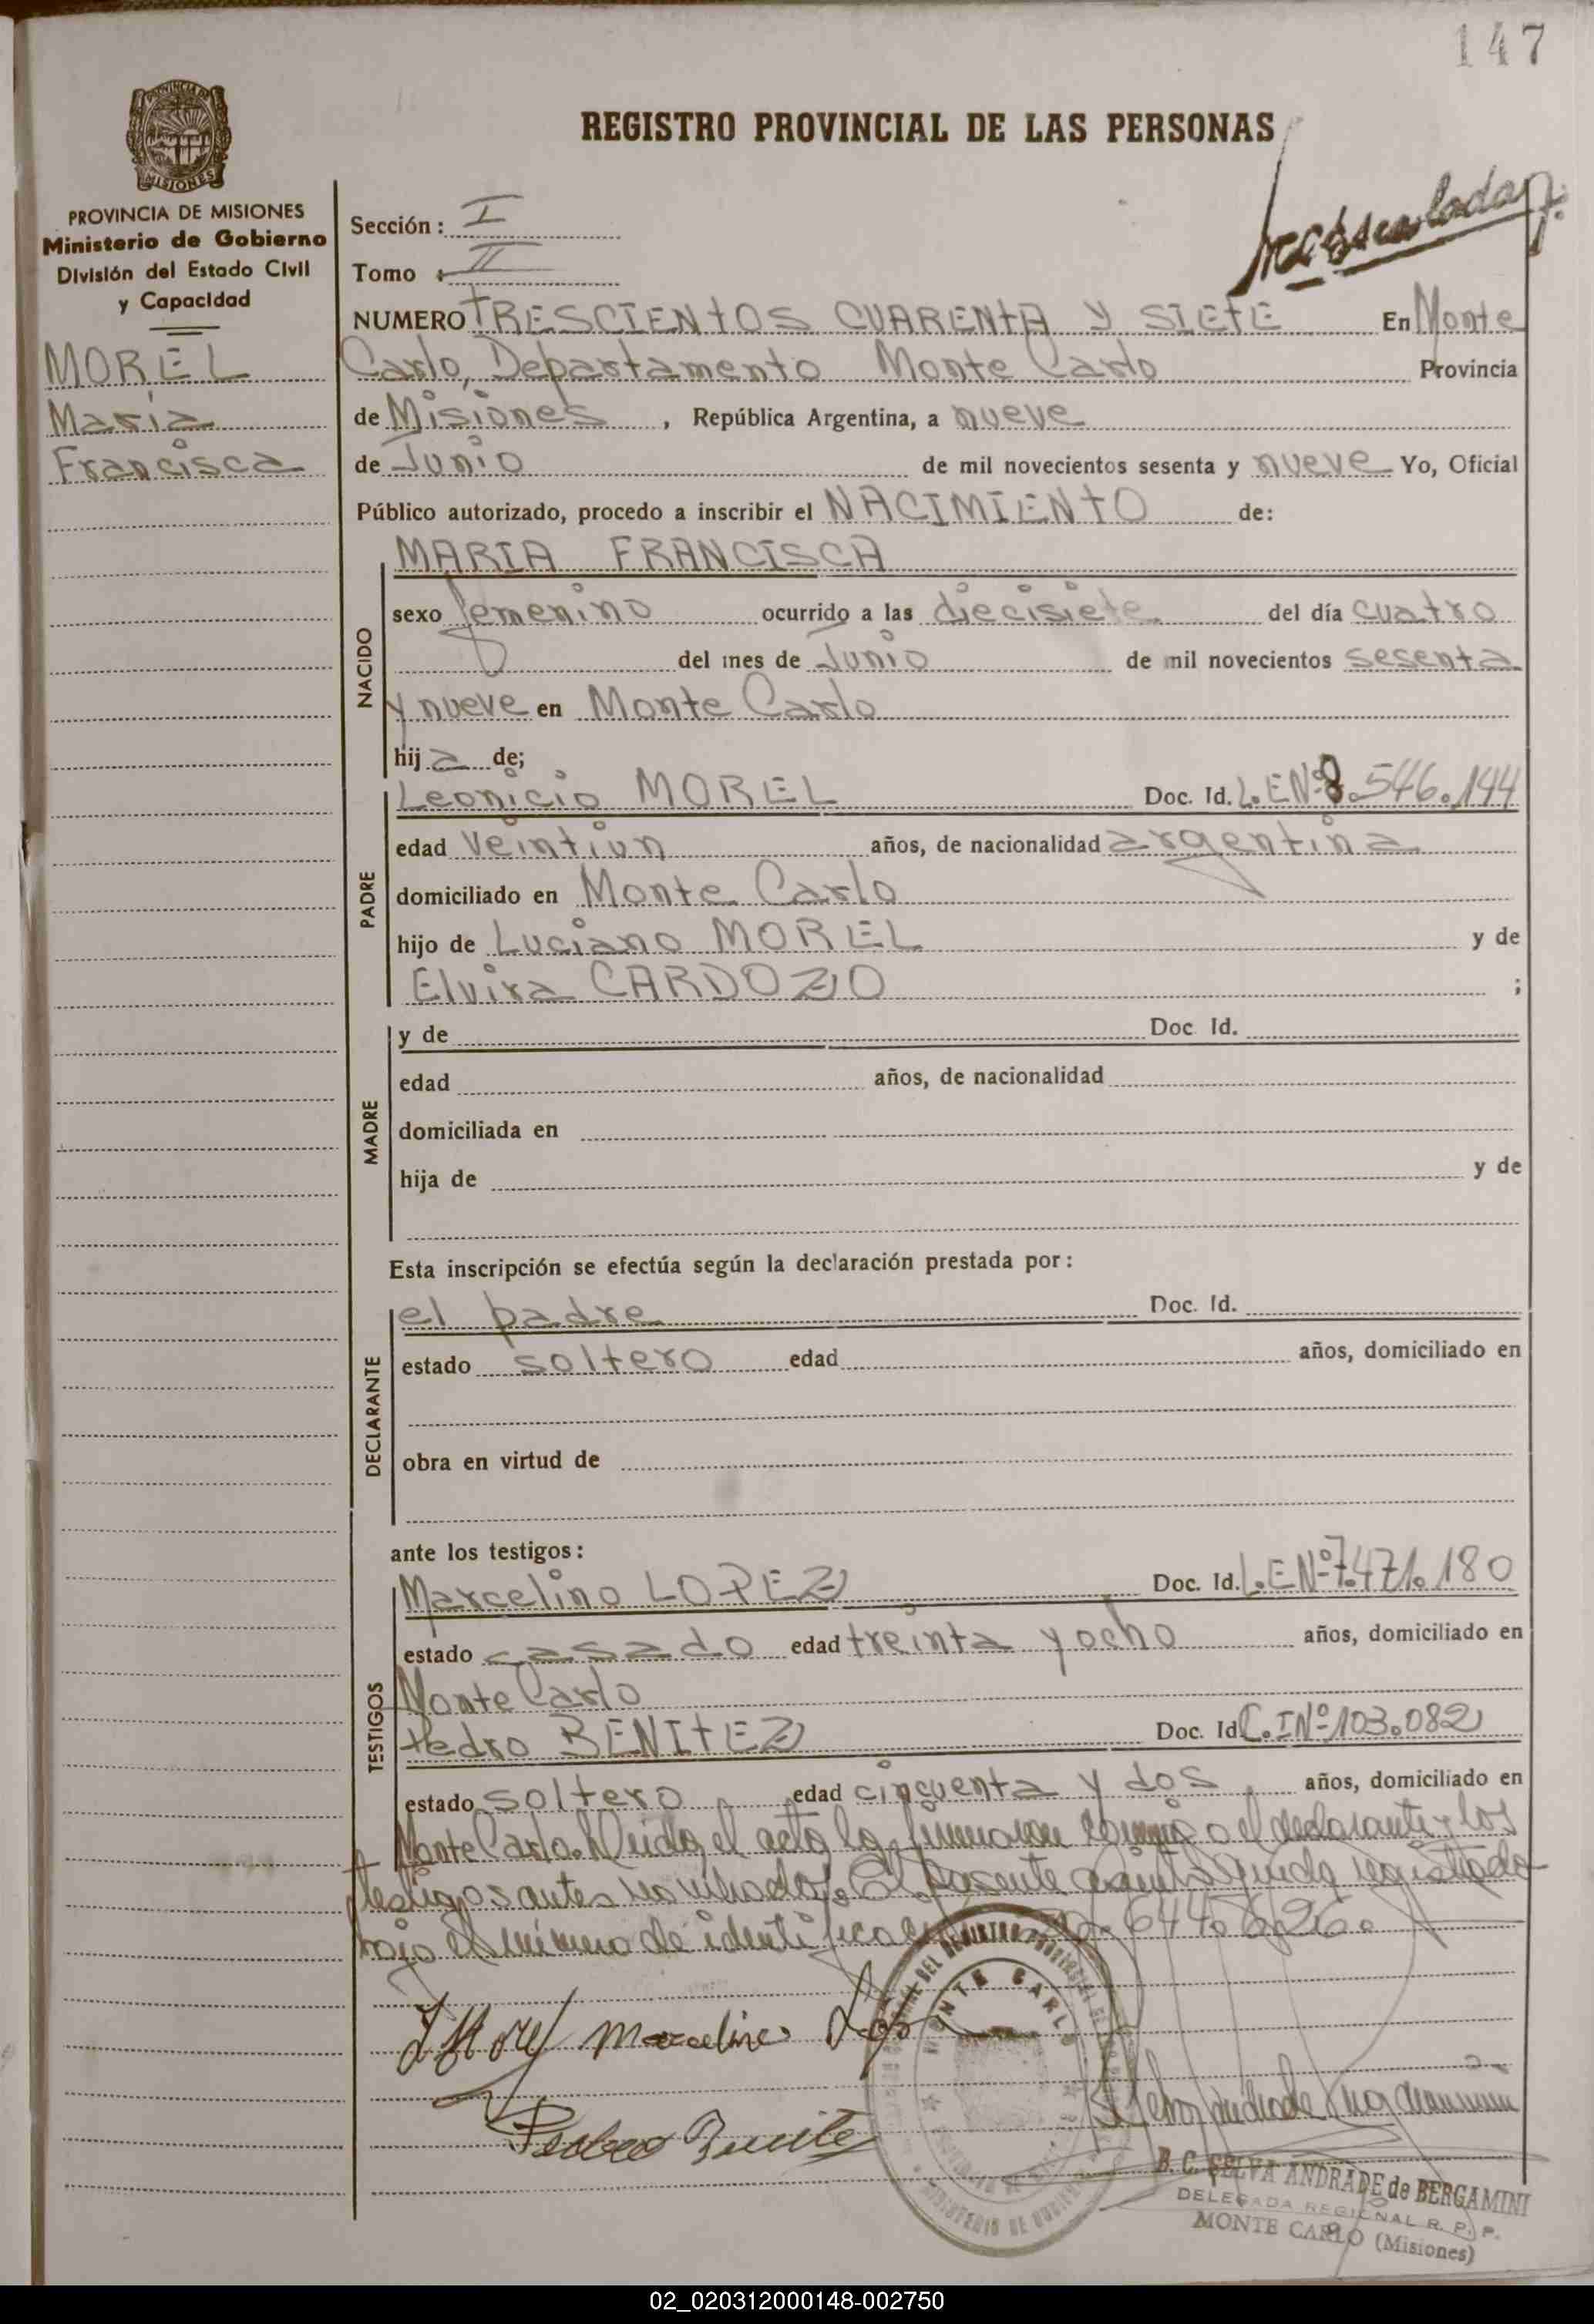 147
REGISTRO PROVINCIAL DE LAS PERSONAS
PROVINCIA DE MISIONES
Ministerio de Gobierno
División del Estado Civil
y Capacidad
MOREL
María
Francisca
Sección: I
Tomo II
NUMERO TRESCIENTOS CUARENTA Y SIETE En Monte
Carlo, Departamento Monte Carlo Provincia
de Misiones, República Argentina, a nueve
de Junio de mil novecientos sesenta y nueve Yo, Oficial
Público autorizado, procedo a inscribir el NACIMIENTO de:
NACIDO
MARIA FRANCISCA
sexo femenino ocurrido a las diecisiete del día cuatro
del mes de Junio de mil novecientos sesenta
y nueve en Monte Carlo
hija de;
PADRE
Leonicio MOREL Doc. Id. L.E.Nº 8.546.144
edad veintiun años, de nacionalidad argentina
domiciliado en Monte Carlo
hijo de Luciano MOREL y de
Elvira CARDOZO ;
MADRE
y de Doc. Id.
edad años, de nacionalidad
domiciliada en
hija de y de
Esta inscripción se efectúa según la declaración prestada por:
DECLARANTE
el padre Doc. Id.
estado soltero edad años, domiciliado en
obra en virtud de
ante los testigos:
TESTIGOS
Marcelino LOPEZ Doc. Id. L.E.Nº 7.471.180
estado casado edad treinta y ocho años, domiciliado en
Monte Carlo
Pedro BENITEZ Doc. Id. C.I.Nº 103.082
estado soltero edad cincuenta y dos años, domiciliado en
Monte Carlo. Leida el acta la firmaron conmigo el declarante y los
testigos antes nombrados. El presente queda registrado
bajo el número de identificación 644.626.
LMorel Marcelino Lopez
Pedro Benite
MONTE CARLO
B. C. SELVA ANDRADE de BERGAMINI
DELEGADA REGIONAL R. P. P.
MONTE CARLO (Misiones)
02_020312000148-002750